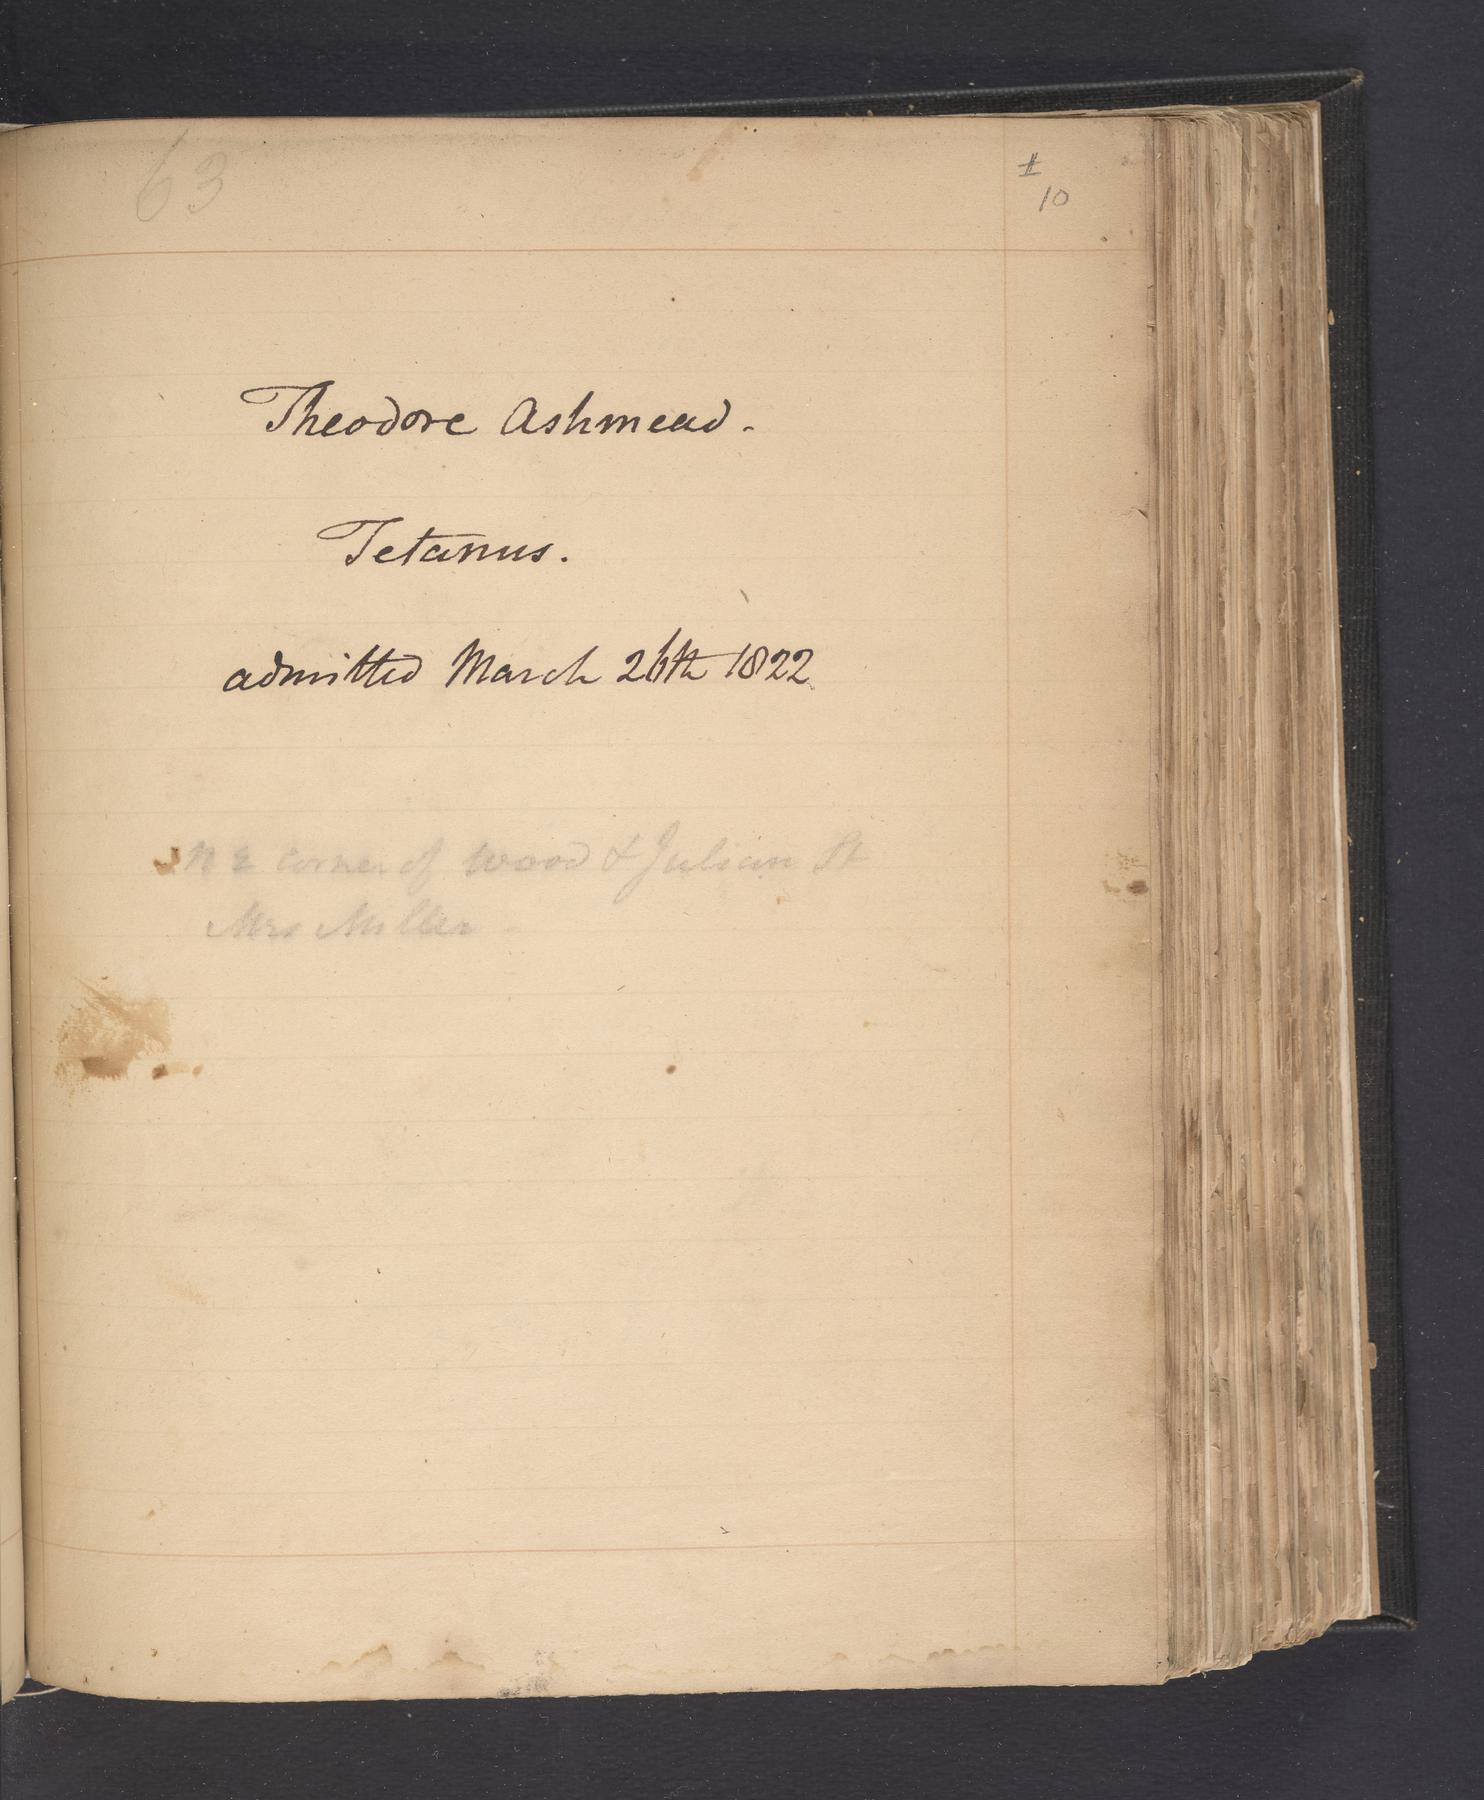 63
1
10
Theodore Ashmead.
Tetanus.
admitted March 26th 1822
N E corner of Wood & Julian St
Mrs Miller